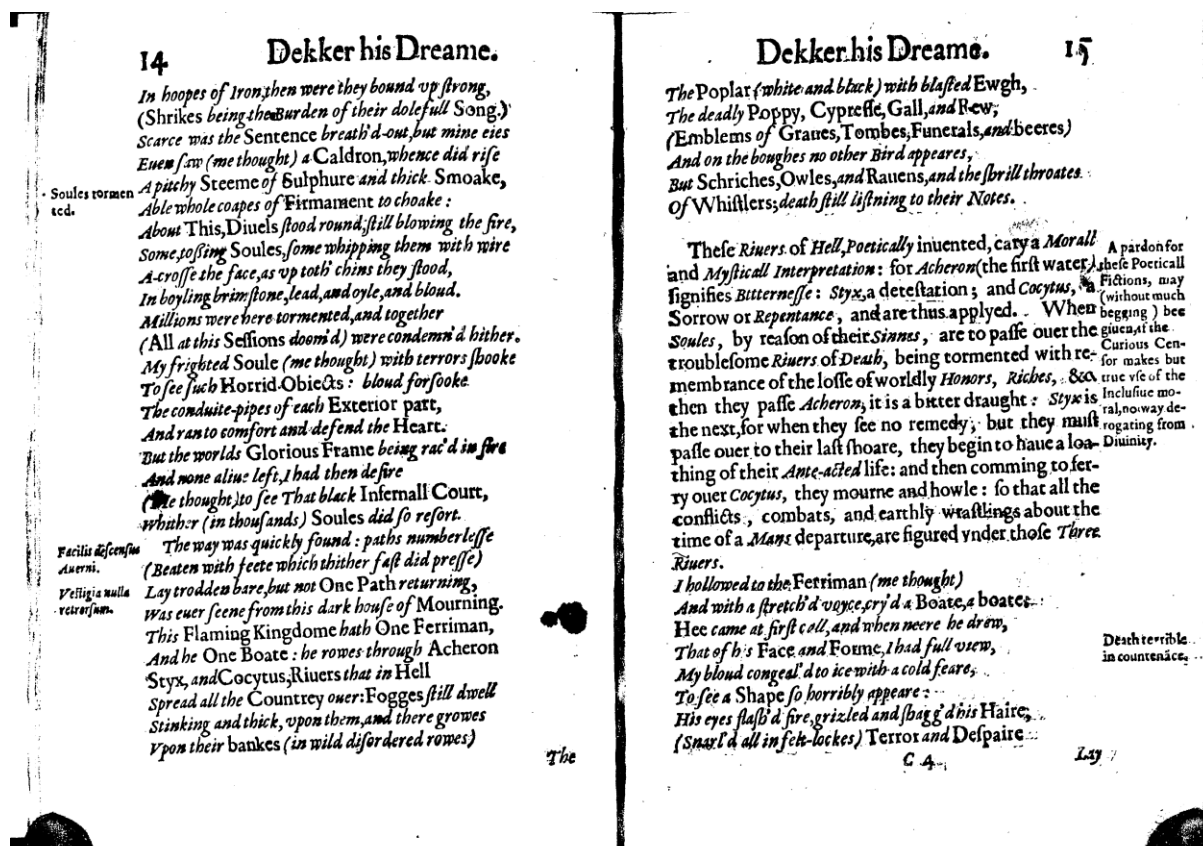 14 Dekker his Dreame.
In hoopes of Iron,then were they bound vp ſtrong,
(Shrikes being the Burden of their dolefull Song.)
Scarce was the Sentence breath'd-out,but mine eies
Euen ſaw (me thought) a Caldron,whence did riſe
A pitchy Steeme of Sulphure and thick Smoake,
Able whole coapes of Firmament to choake:
About This, Diuels ſtood round,ſtill blowing the fire,
Some,toſsing Soules,ſome whipping them with wire
A-croſſe the face,as vp toth' chins they ſtood,
In boyling brimſtone,lead,and oyle,and bloud.
Millions were here tormented,and together
(All at this Seſsions doom'd) were condemn'd hither.
My frighted Soule (me thought) with terrors ſhooke
To ſee ſuch Horrid Obiects: bloud forſooke
The conduite-pipes of each Exterior part,
And ran to comfort and defend the Heart.
But the worlds Glorious Frame being rac'd in fire
And none aliue left,I had then deſire
(Me thought) to ſee That black Infernall Court,
Whither (in thouſands) Soules did ſo reſort.
The way was quickly found: paths numberleſſe
(Beaten with feete which thither faſt did preſſe)
Lay trodden bare,but not One Path returning,
Was euer ſeene from this dark houſe of Mourning.
This Flaming Kingdome hath One Ferriman,
And he One Boate: he rowes through Acheron
Styx, and Cocytus,Riuers that in Hell
Spread all the Countrey ouer:Fogges ſtill dwell
Stinking and thick, vpon them,and there growes
Vpon their bankes (in wild diſordered rowes)
The
Soules tormen
ted.
Facilis deſcenſus
Auerni.
Veſtigia nulla
retrorſum.
Dekker his Dreame. 15
The Poplar (white and black) with blaſted Ewgh,
The deadly Poppy, Cypreſſe, Gall,and Rew,
(Emblems of Graues,Tombes,Funerals,and beeres)
And on the boughes no other Bird appeares,
But Schriches,Owles,and Rauens,and the ſhrill throates
Of Whiſtlers;death ſtill liſtning to their Notes.
Theſe Riuers of Hell,Poetically inuented, cary a Morall
and Myſticall Interpretation: for Acheron(the firſt water)
ſignifies Bitterneſſe: Styx,a deteſtation; and Cocytus, a
Sorrow or Repentance, and are thus applyed. When
Soules, by reaſon of their Sinnes, are to paſſe ouer the
troubleſome Riuers of Death, being tormented with re-
membrance of the loſſe of worldly Honors, Riches, &c
then they paſſe Acheron, it is a bitter draught: Styx is
the next,for when they ſee no remedy, but they muſt
paſſe ouer to their laſt ſhoare, they begin to haue a loa-
thing of their Ante-acted life: and then comming to fer-
ry ouer Cocytus, they mourne and howle: ſo that all the
conflicts, combats, and earthly wraſtlings about the
time of a Mans departure,are figured vnder thoſe Three
Riuers.
I hollowed to the Ferriman (me thought)
And with a ſtretch'd voyce,cry'd a Boate,a boate:
Hee came at firſt call,and when neere he drew,
That of his Face and Forme,I had full view,
My bloud congeal'd to ice with a cold feare,
To ſee a Shape ſo horribly appeare:
His eyes flaſh'd fire,grizled and ſhagg'd his Haire,
(Snarl'd all in felt-lockes) Terror and Deſpaire
C 4 Lay
A pardon for
theſe Poeticall
Fictions, may
(without much
begging) bee
giuen,if the
Curious Cen-
ſor makes but
true vſe of the
Incluſiue mo-
ral,no way de-
rogating from
Diuinity.
Death terrible
in countenāce.